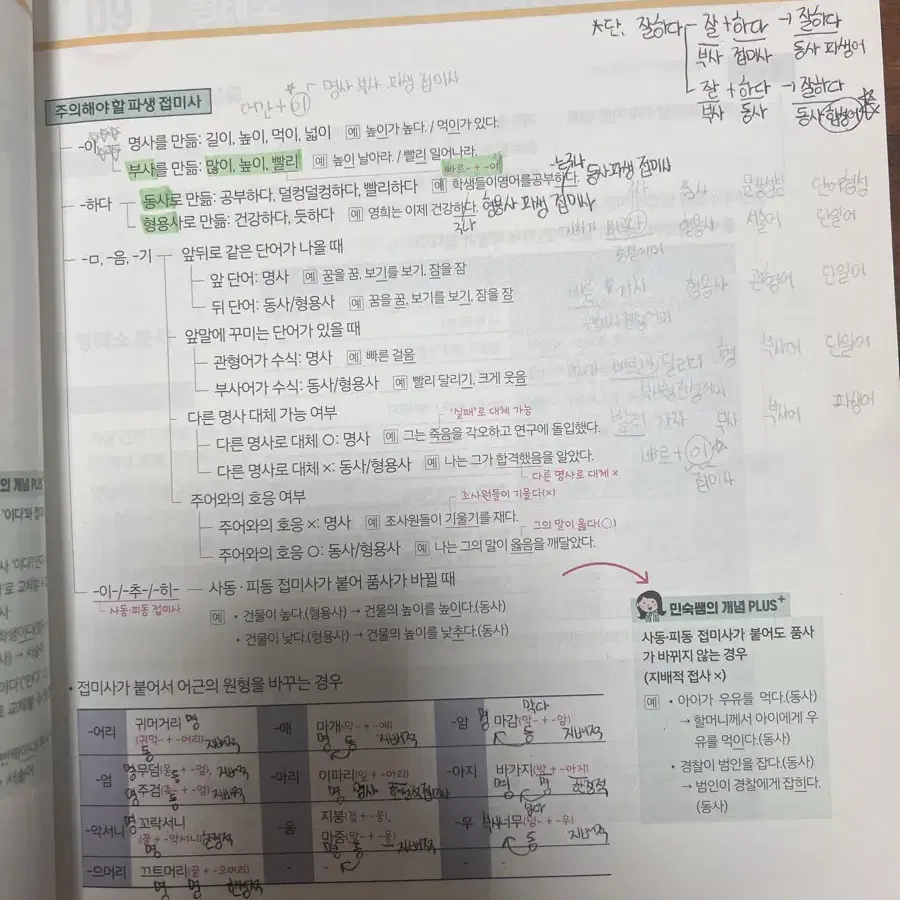 *단, 잘하다 - 잘 + 하다 → 잘하다
부사 접미사 동사 파생어
잘 + 하다 → 잘하다
부사 동사 동사 합성어
명사 부사 파생 접미사
주의해야 할 파생 접미사
-이 명사를 만듦: 길이, 높이, 먹이, 넓이 예 높이가 높다. / 먹이가 있다.
부사를 만듦: 많이, 높이, 빨리 예 높이 날아라. / 빨리 일어나라.
빠르- + -이
-하다 동사로 만듦: 공부하다, 덜컹덜컹하다, 빨리하다 예 학생들이영어를공부하다. 동사 파생 접미사
형용사로 만듦: 건강하다, 듯하다 예 영희는 이제 건강하다. 형용사 파생 접미사
동사 문장성분 단어형성
형용사 서술어 단일어
-ㅁ, -음, -기 앞뒤로 같은 단어가 나올 때
앞 단어: 명사 예 꿈을 꿈, 보기를 보기, 잠을 잠
뒤 단어: 동사/형용사 예 꿈을 꿈, 보기를 보기, 잠을 잠
형용사 관형어 단일어
앞말에 꾸미는 단어가 있을 때
관형어가 수식: 명사 예 빠른 걸음
부사어가 수식: 동사/형용사 예 빨리 달리기, 크게 웃음
빠르게 달리다 형 부사어 단일어
다른 명사 대체 가능 여부
'실패'로 대체 가능
다른 명사로 대체 ○: 명사 예 그는 죽음을 각오하고 연구에 돌입했다.
빨리 가자 부사 부사어 파생어
다른 명사로 대체 ×: 동사/형용사 예 나는 그가 합격했음을 알았다.
다른 명사로 대체 ×
빠르 + 이
접미사
주어와의 호응 여부
조사원들이 기울다(×)
주어와의 호응 ×: 명사 예 조사원들이 기울기를 재다.
그의 말이 옳다(○)
주어와의 호응 ○: 동사/형용사 예 나는 그의 말이 옳음을 깨달았다.
-이-/-추-/-히- 사동·피동 접미사가 붙어 품사가 바뀔 때
사동·피동 접미사
예 • 건물이 높다.(형용사) → 건물의 높이를 높이다.(동사)
• 건물이 낮다.(형용사) → 건물의 높이를 낮추다.(동사)
민숙쌤의 개념 PLUS+
사동·피동 접미사가 붙어도 품사
가 바뀌지 않는 경우
(지배적 접사 ×)
예 • 아이가 우유를 먹다.(동사)
→ 할머니께서 아이에게 우
유를 먹이다.(동사)
• 경찰이 범인을 잡다.(동사)
→ 범인이 경찰에게 잡히다.
(동사)
• 접미사가 붙어서 어근의 원형을 바꾸는 경우
막다
-어리 귀머거리 명 -애 마개(막- + -애) -암 명 마감(막- + -암)
(귀막- + -어리) 지배적 명 동 지배적 동 지배적
동
-엄 명 무덤(묻- + -엄), 지배적 -아리 이파리(잎 + -아리) -아지 바가지(박 + -아지)
명 주검(죽- + -엄) 지배적 명 명사 한정적접미사 명 명 한정적
-악서니 꼬락서니 -웅 지붕(집 + -웅), -우 부사 너무(넘- + -우)
(꼴 + -악서니) 한정적 마중(맞- + -웅) 동 지배적
명 명 동 지배적
-으머리 끄트머리(끝 + -으머리) - - - -
명 명 한정적